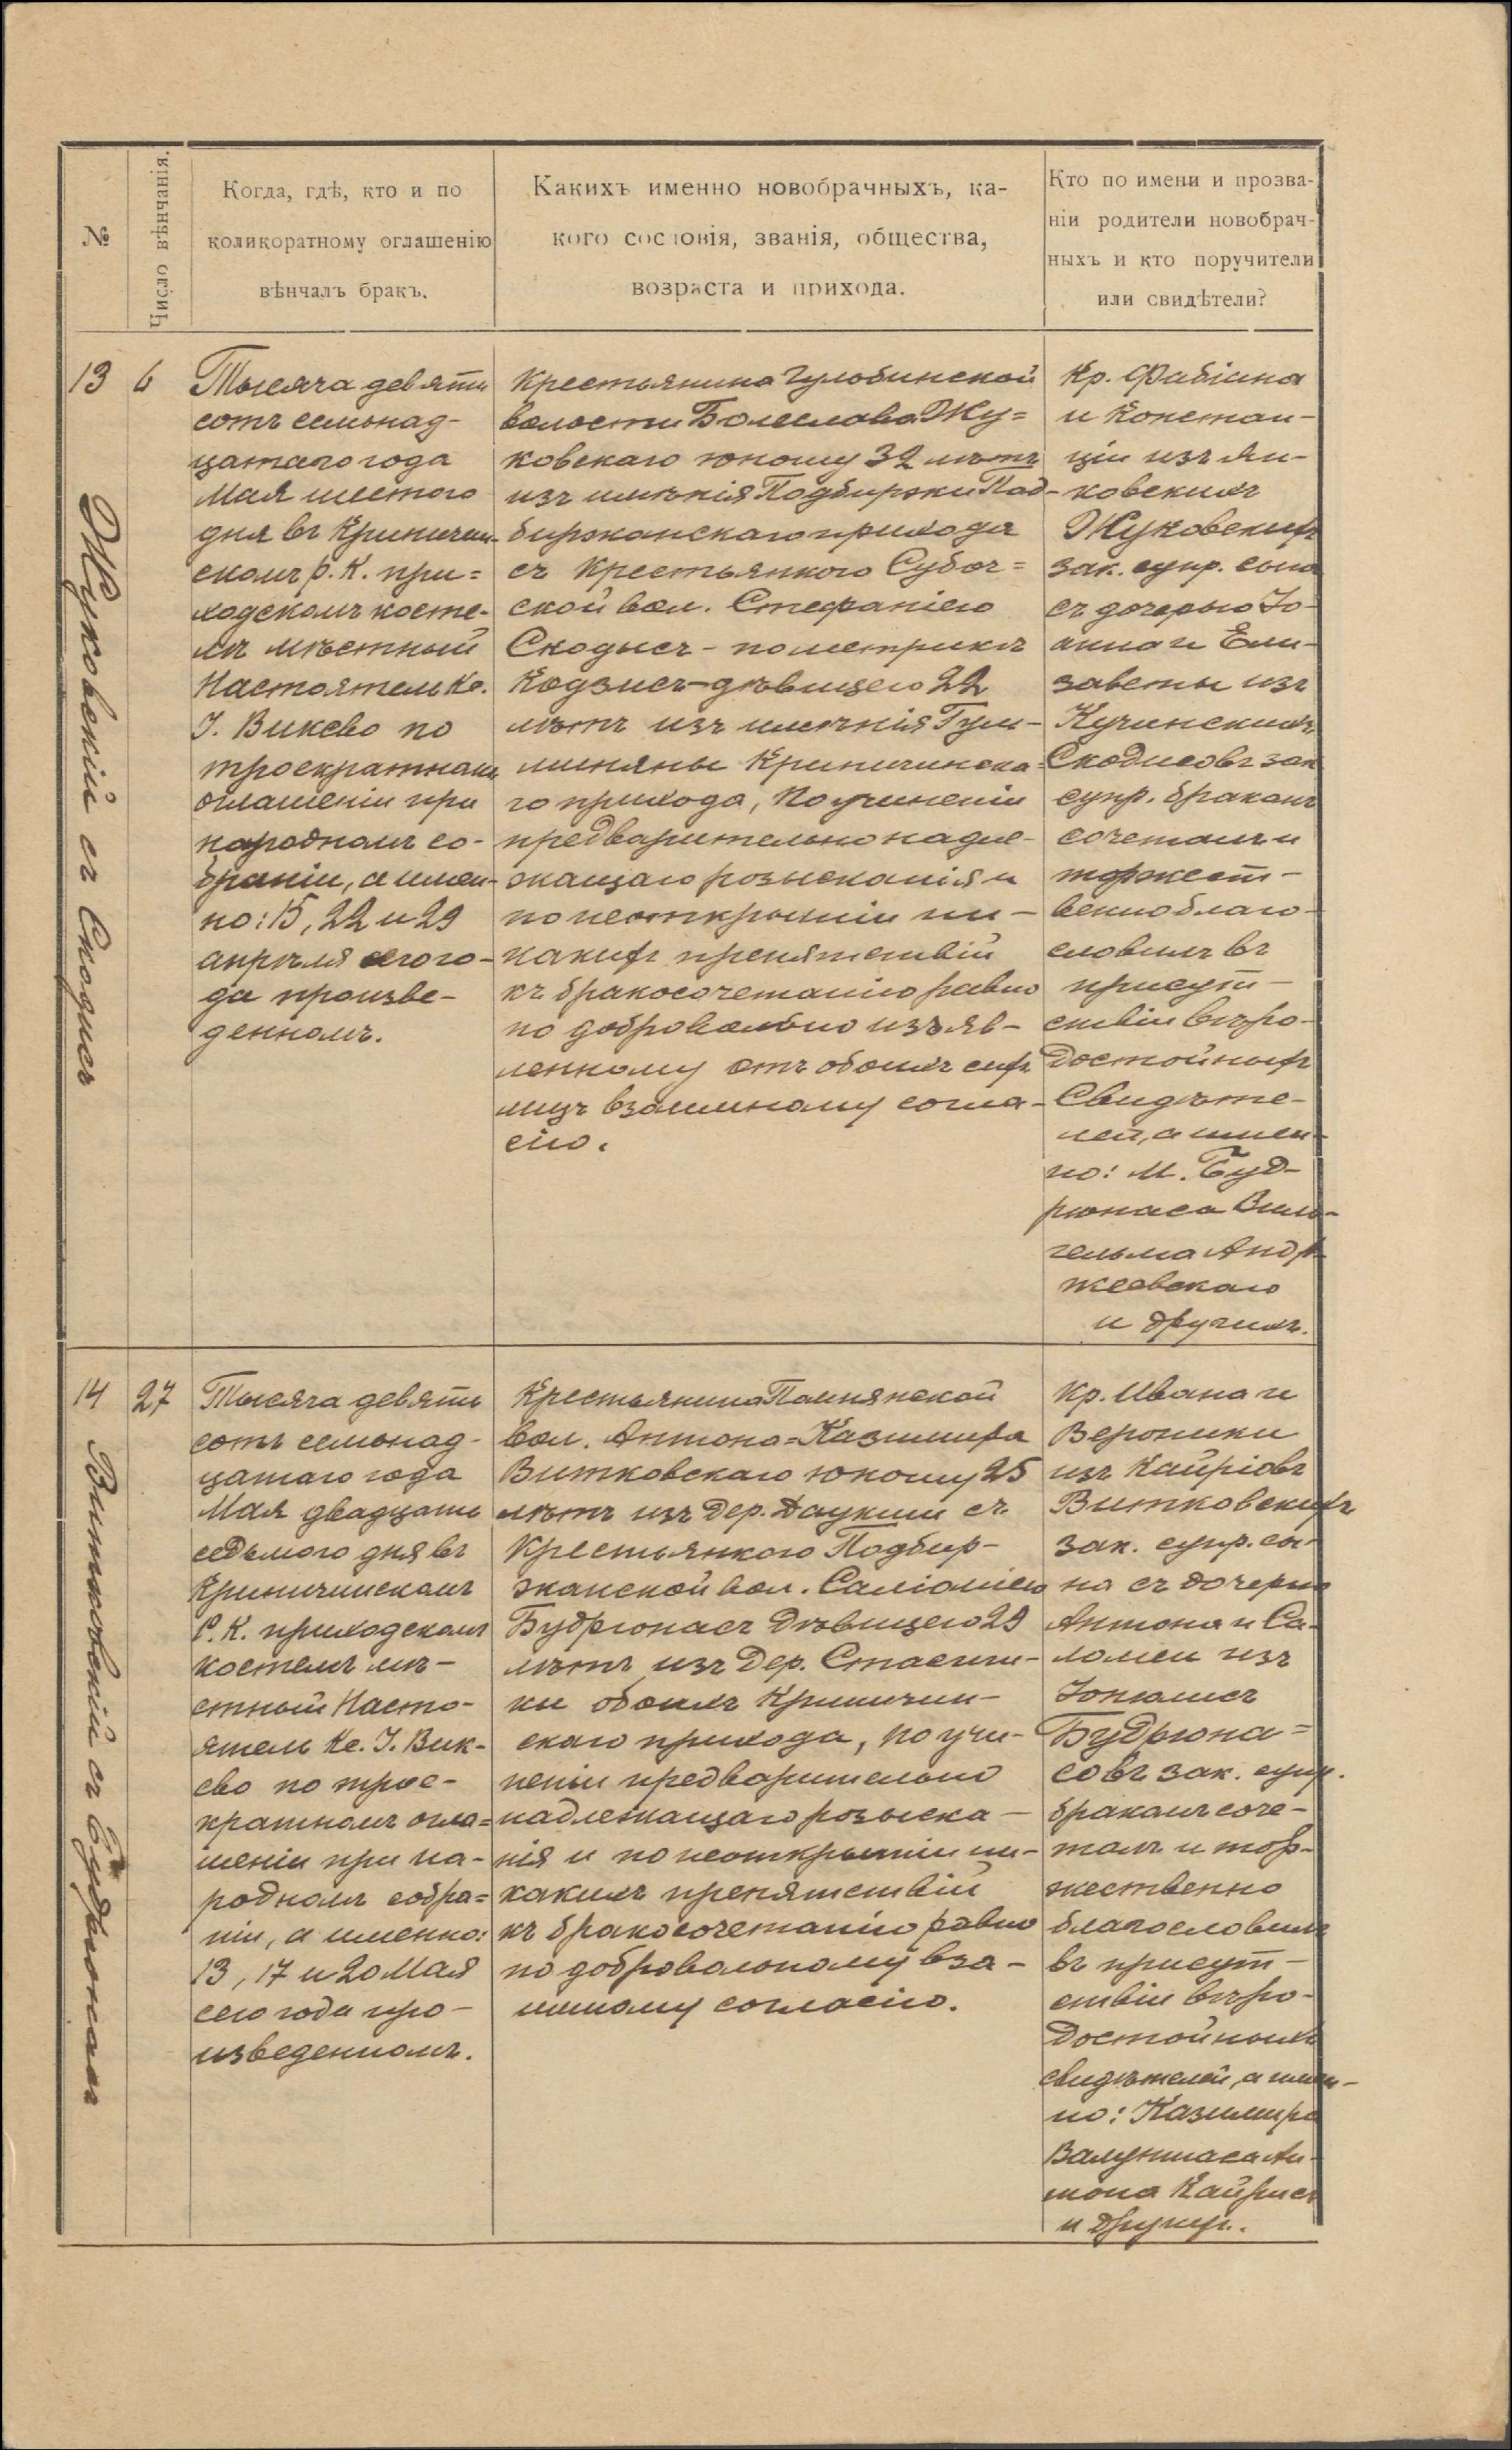 №
Число вѣнчанія.
Когда, гдѣ, кто и по
коликоратному оглашенію
вѣнчалъ бракъ.
Какихъ именно новобрачныхъ, ка-
кого сословія, званія, общества,
возраста и прихода.
Кто по имени и прозва-
ніи родители новобрач-
ныхъ и кто поручители
или свидѣтели?
13
6
Жуковскій съ Скодисъ
Тысяча девять
сотъ семьнад-
цатаго года
Мая шестого
дня въ Криничин-
скомъ р. К. при=
ходскомъ косте-
лѣ мѣстный
Настоятель Кс.
І. Виксво по
троекратномъ
оглашеніи при
народномъ со-
браніи, а имен-
но: 15, 22 и 29
апрѣля сего го-
да произве-
денномъ.
Крестьянина Гулобинской
волости Болеслава Жу=
ковскаго юношу 32 лѣтъ
изъ имѣнія Подбиржи Под-
биржанскаго прихода
съ Крестьянкою Субоч=
ской вол. Стефаніею
Скодисъ - по метрикѣ
Кодзисъ - дѣвицею 22
лѣтъ изъ имѣнія Гум-
линяны Криничинска-
го прихода, По учиненіи
предварительно надле-
жащаго розысканія и
по неоткрытіи ни-
какихъ препятствій
къ бракосочетанію равно
по добровольно изъяв-
ленному отъ обоихъ сихъ
лицъ взаимному согла-
сію.
Кр. Фабіана
и Констан-
ціи изъ Ян-
ковскихъ
Жуковскихъ
зак. супр. сына
съ дочерью Іо-
анна и Ели-
заветы изъ
Кучинскихъ
Скодисовъ зак
супр. бракомъ
сочеталъ и
торжест-
венно благо-
словилъ въ
присут-
ствіи вѣро-
достойныхъ
Свидѣте-
лей, а имен-
но: М. Буд-
рюнаса Виль-
гельма Андр
жеевскаго
и другихъ.
14
27
Витковскій съ Будрюнасъ
Тысяча девять
сотъ семьнад-
цатаго года
Мая двадцать
седьмого дня въ
Криничинскомъ
Р. К. приходскомъ
костелѣ мѣ-
стный Насто-
ятель Кс. І. Вик-
сво по трое-
кратномъ огла=
шеніи при на-
родномъ собра=
ніи, а именно:
13, 17 и 20 Мая
сего года про-
изведенномъ.
Крестьянина Поинянской
вол. Антона=Казимира
Витковскаго юношу 25
лѣтъ изъ дер. Даукши съ
Крестьянкою Подбир-
жанской вол. Саломіею
Будрюнасъ дѣвицею 29
лѣтъ изъ дер. Стасиш-
ки обоихъ Криничин-
скаго прихода, по учи-
неніи предварительно
надлежащаго розыска-
нія и по неоткрытіи ни-
какихъ препятствій
къ бракосочетанію равно
по добровольному вза-
имному согласію.
Кр. Ивана и
Вероники
изъ Кайрісвъ
Витковскихъ
зак. супр. сы-
на съ дочерью
Антона и Са-
ломеи изъ
Іонюшисъ
Будрюна=
совъ зак. супр.
бракомъ соче-
талъ и тор-
жественно
благословилъ
въ присут-
ствіи вѣро-
достойныхъ
свидѣтелей, а имен-
но: Казимира
Валуншаса Ан-
тона Кайрисъ
и других.